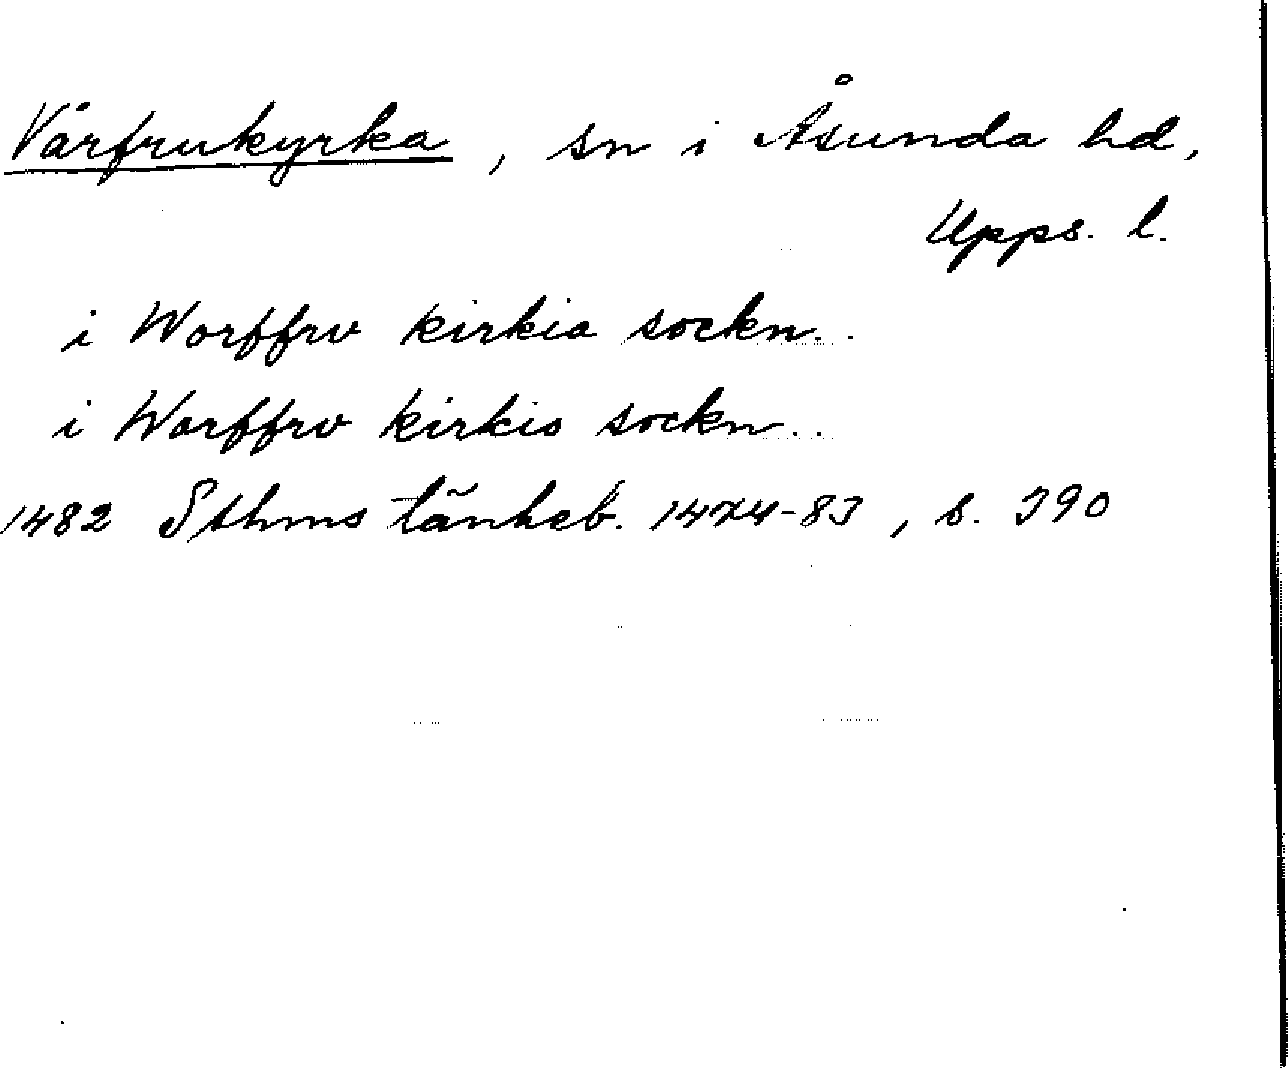 Vårfrukyrka, sn i Åsunda hd,
Upps. l.
i Worffrv kirkia sockn..
i Worffrv kirkio sockn..
1482 Sthms tänkeb. 1474-83, s. 390